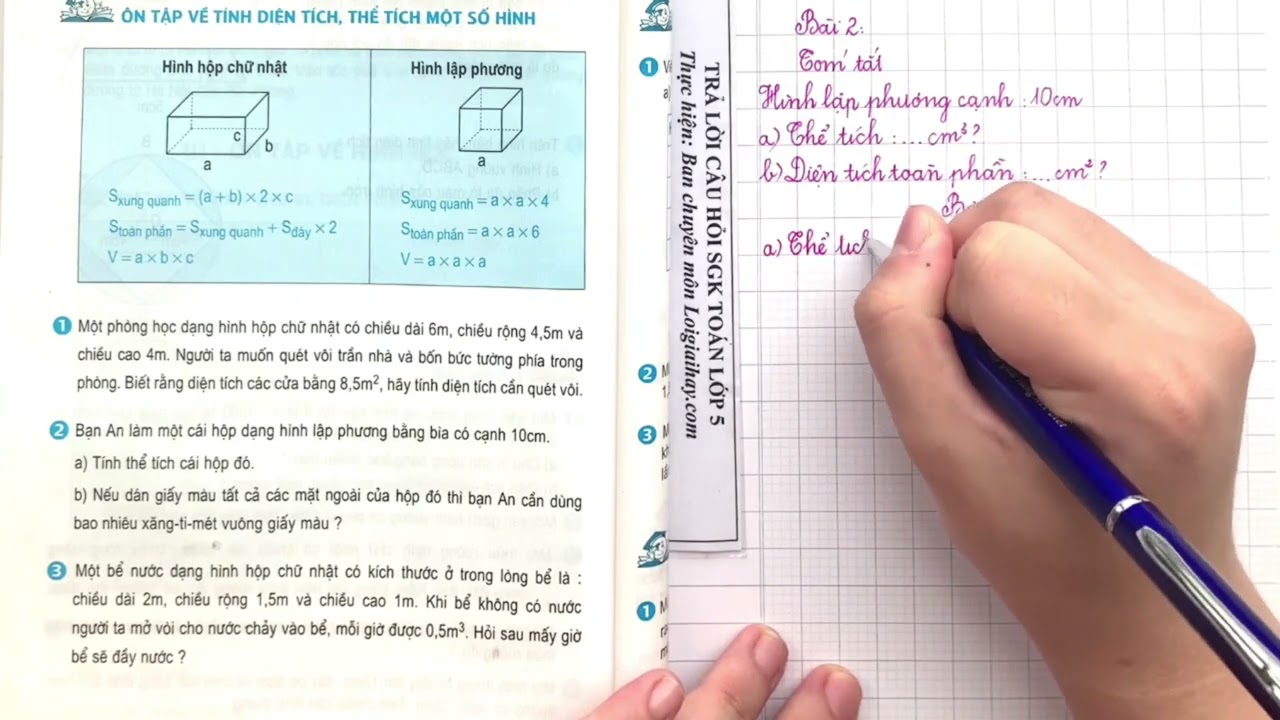 ÔN TẬP VỀ TÍNH DIỆN TÍCH, THỂ TÍCH MỘT SỐ HÌNH
Hình hộp chữ nhật
c
b
a
Sxung quanh = (a + b) × 2 × c
Stoàn phần = Sxung quanh + Sđáy × 2
V = a × b × c
Hình lập phương
a
Sxung quanh = a × a × 4
Stoàn phần = a × a × 6
V = a × a × a
1 Một phòng học dạng hình hộp chữ nhật có chiều dài 6m, chiều rộng 4,5m và
chiều cao 4m. Người ta muốn quét vôi trần nhà và bốn bức tường phía trong
phòng. Biết rằng diện tích các cửa bằng 8,5m², hãy tính diện tích cần quét vôi.
2 Bạn An làm một cái hộp dạng hình lập phương bằng bìa có cạnh 10cm.
a) Tính thể tích cái hộp đó.
b) Nếu dán giấy màu tất cả các mặt ngoài của hộp đó thì bạn An cần dùng
bao nhiêu xăng-ti-mét vuông giấy màu ?
3 Một bể nước dạng hình hộp chữ nhật có kích thước ở trong lòng bể là :
chiều dài 2m, chiều rộng 1,5m và chiều cao 1m. Khi bể không có nước
người ta mở vòi cho nước chảy vào bể, mỗi giờ được 0,5m³. Hỏi sau mấy giờ
bể sẽ đầy nước ?
1
2
3
1
TRẢ LỜI CÂU HỎI SGK TOÁN LỚP 5
Thực hiện: Ban chuyên môn Loigiaihay.com
Bài 2:
Tóm tắt
Hình lập phương cạnh : 10cm
a) Thể tích : ... cm³ ?
b) Diện tích toàn phần : ... cm² ?
a) Thể